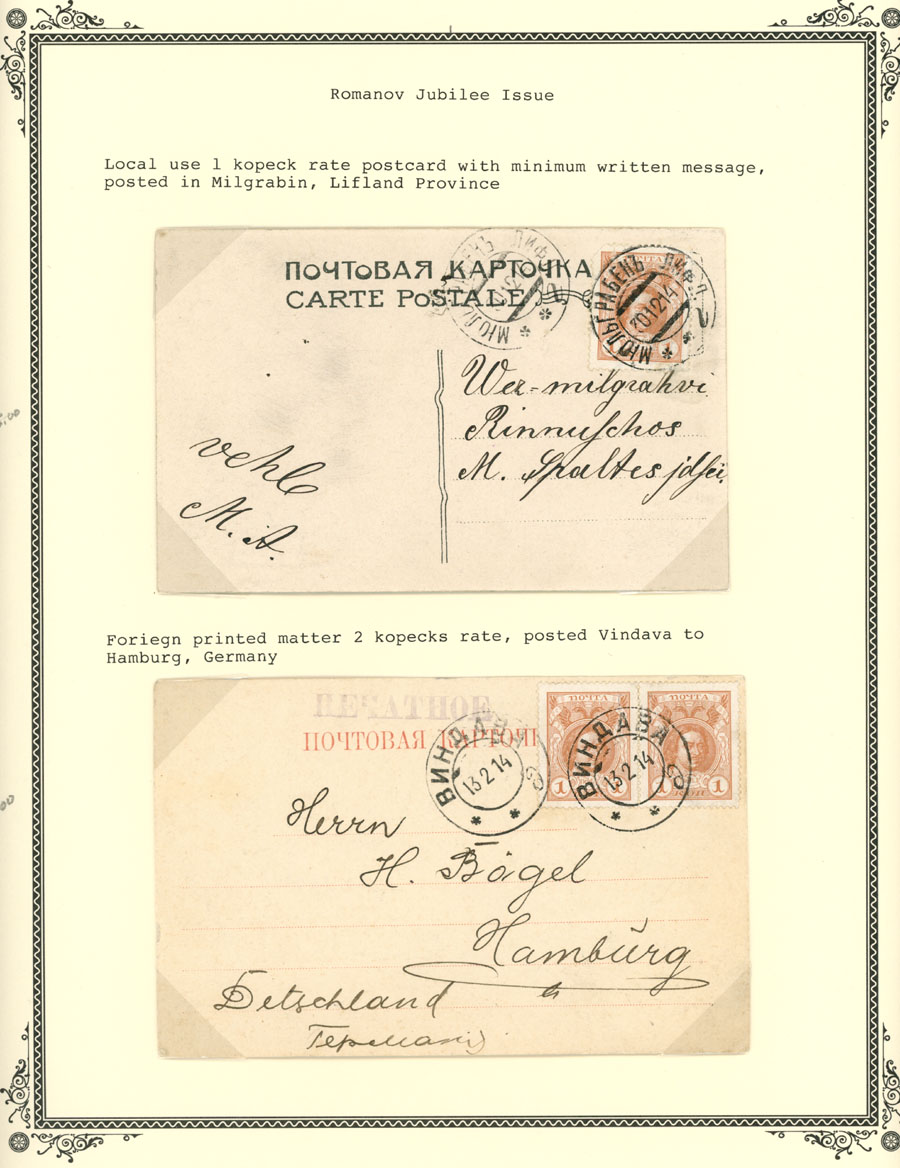 Romanov Jubilee Issue
Local use l kopeck rate postcard with minimum written message,
posted in Milgrabin, Lifland Province
ПОЧТОВАЯ КАРТОЧКА
CARTE POSTALE
МЮЛЬГРАБЕНЪ ЛИФЛ. 2
301214
1
Wez-milgrahvi
Rinnuschos
M. Spaltes jdsei.
vehl
M. A.
Foriegn printed matter 2 kopecks rate, posted Vindava to
Hamburg, Germany
ПЕЧАТНОЕ
ПОЧТОВАЯ
ПОЧТА ПОЧТА
ВИНДАВА
13 2 14
ВИНДАВА
13 2 14
1 1 КОП 1
Herrn
H. Bögel
Hamburg
Detschland